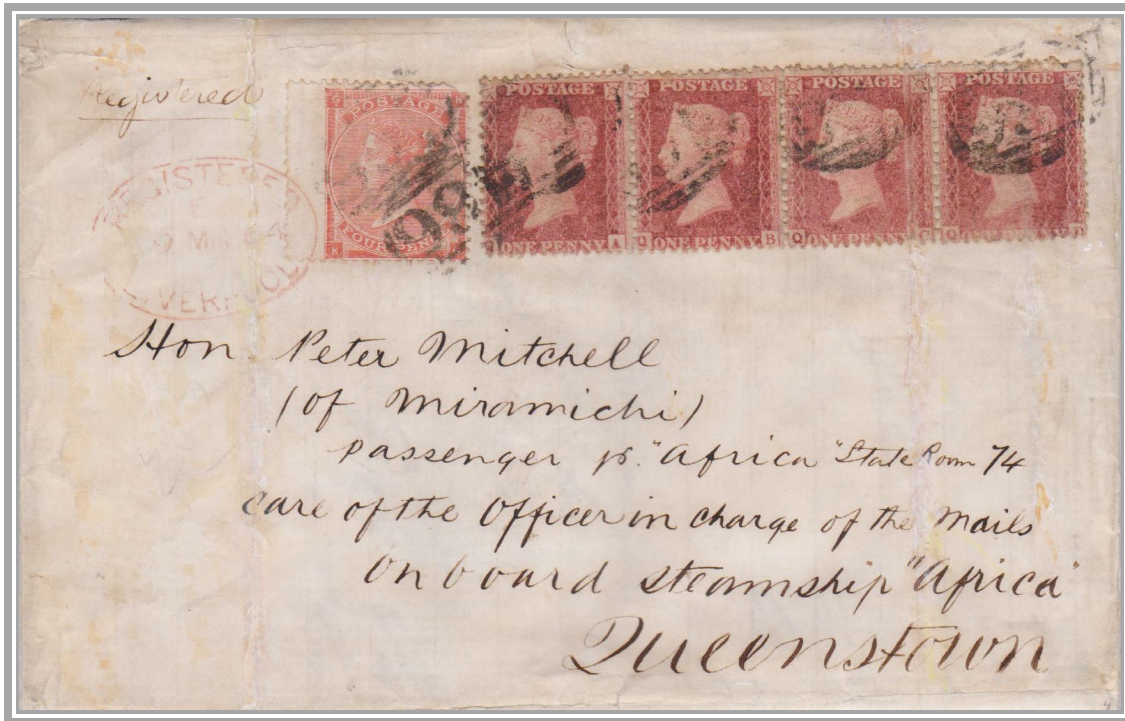 Registered
POSTAGE
FOUR PENCE
POSTAGE
ONE PENNY A
POSTAGE
Q ONE PENNY B
POSTAGE
Q ONE PENNY C
POSTAGE
Q
REGISTERED
E
MR 64
LIVERPOOL
Hon Peter Mitchell
(of Miramichi)
passenger pr. "Africa" State Room 74
care of the Officer in charge of the Mails
on board steamship "Africa"
Queenstown